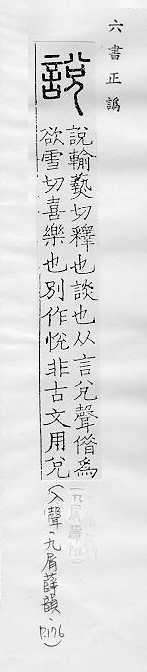 六書正譌
說
說輸爇切釋也談也从言兌聲借為
欲雪切喜樂也別作悅非古文用兌
(入聲、九屑薛韻、P.176)